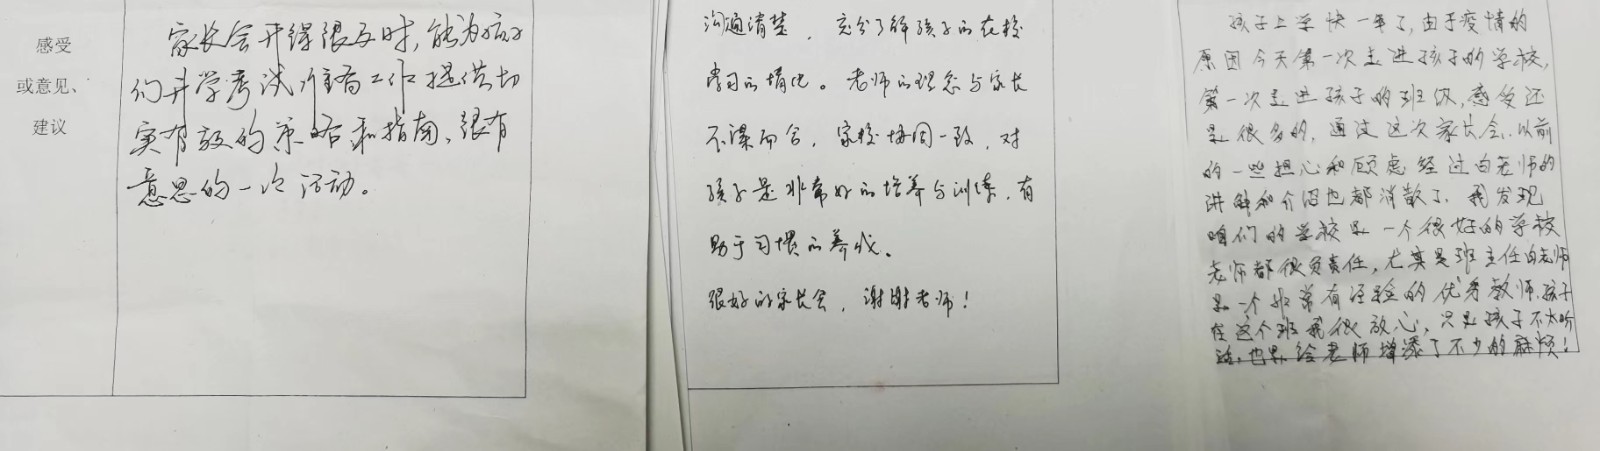 感受
或意见、
建议
家长会开得很及时,能为孩子
们升学考试、准备工作提供切
实有效的策略和指南、很有
意思的一次活动。
沟通清楚，充分了解孩子的在校
学习的情况。老师的理念与家长
不谋而合，家校协同一致，对
孩子是非常好的培养与训练，有
助于习惯的养成。
很好的家长会，谢谢老师！
孩子上学快一年了,由于疫情的
原因今天第一次走进孩子的学校,
第一次走进孩子的班级,感受还
是很多的,通过这次家长会,以前
的一些担心和顾虑经过白老师的
讲解和介绍也都消散了,我发现
咱们的学校是一个很好的学校
老师都很负责任,尤其是班主任白老师
是一个非常有经验的优秀教师,孩子
在这个班我很放心,只是孩子不太听
话,也是给老师增添了不少的麻烦!